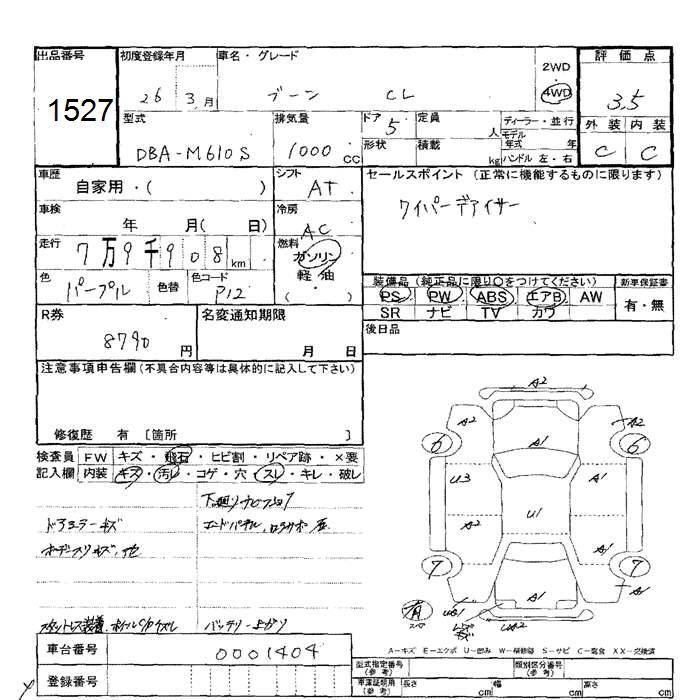 出品番号 初度登録年月 車名・グレード 2WD 評価点
1527 26 3月 ブーン CL 4WD 3.5
型式 排気量 ドア 5 定員 人 ディーラー・並行 外装 内装
DBA-M610S 1000 CC 形状 積載 kg モデル年式 年 ハンドル 左・右 C C
車歴 自家用・( ) シフト AT セールスポイント (正常に機能するものに限ります)
車検 年 月( 日) 冷房 AC ワイパーデアイサー
走行 7万9千908km 燃料 ガソリン 軽油 ( )
色 パープル 色替 色コード P12 装備品 (純正品に限り○をつけてください) 新車保証書
PS PW ABS エアB AW 有・無
SR ナビ TV カワ
R券 名変通知期限 後日品
8790円 月 日
注意事項申告欄(不具合内容等は具体的に記入して下さい)
修復歴 有 [箇所 ]
検査員 FW キズ・飛石・ヒビ割・リペア跡・×要
記入欄 内装 キズ・汚レ・コゲ・穴・スレ・キレ・破レ
A2
A2 A2
6 A1 6
U3 A1
A2 U1 A1
7 A1 7
有 A1 A1
UA2
下廻りサビ
ドアミラーキズ エンドパネル
バッテリー上がり
A-キズ E-エクボ U-凹み W-補修跡 S-サビ C-腐食 XX-交換済
車台番号 0001404
型式指定番号(参考) 類別区分番号(参考)
登録番号 車庫証明用(参考) 長さ cm 幅 cm 高さ cm